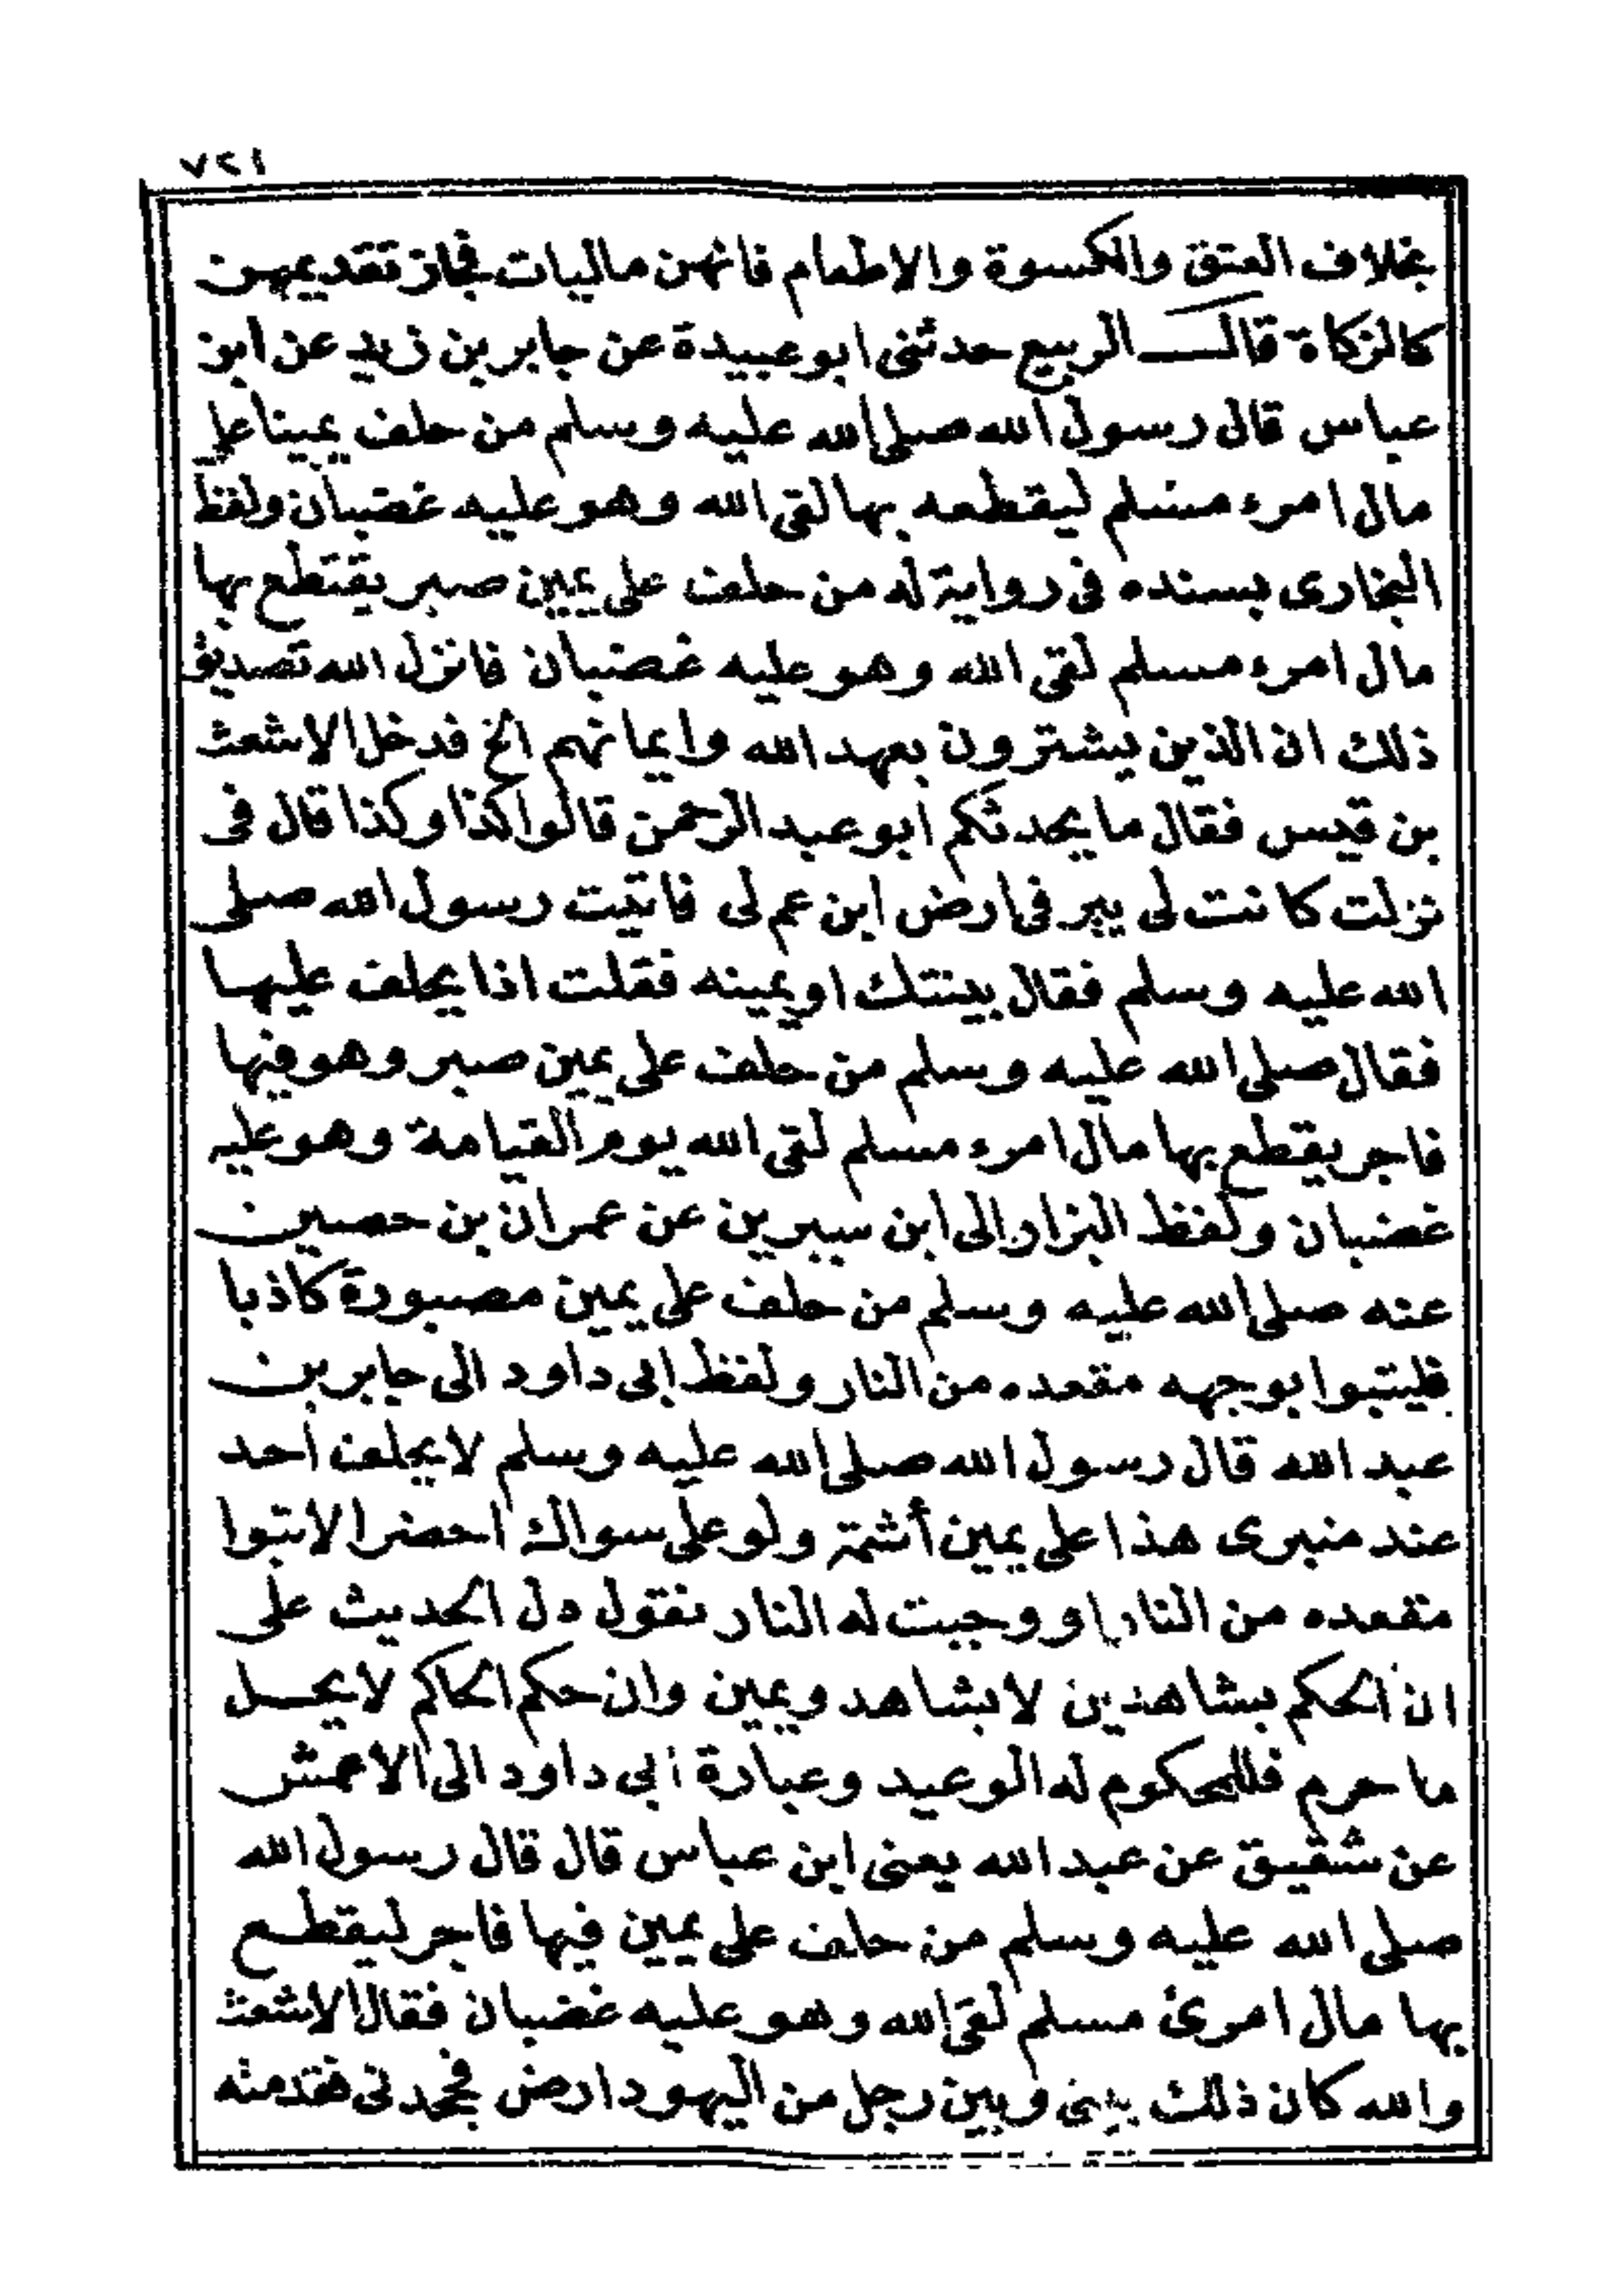 ٧٢١
بخلاف العتق والكسوة والاطعام فانهن ماليات فجاز تقديمهن
كالزكاة قال الربيع حدثنى ابو عبيدة عن جابر بن زيد عن ابن
عباس قال رسول الله صلى الله عليه وسلم من حلف يمينا على
مال امرء مسلم ليقطعه بها لقى الله وهو عليه غضبان ولفظ
البخارى بسنده فى رواية له من حلف على يمين صبر يقتطع بها
مال امرء مسلم لقى الله وهو عليه غضبان فانزل الله تصديق
ذلك ان الذين يشترون بعهد الله وايمانهم الخ فدخل الاشعث
بن قيس فقال ما يحدثكم ابو عبد الرحمن قالوا كذا وكذا قال فى
نزلت كانت لى بير فى ارض ابن عم لى فاتيت رسول الله صلى
الله عليه وسلم فقال بينتك او يمينه فقلت اذا يحلف عليها
فقال صلى الله عليه وسلم من حلف على يمين صبر وهو فيها
فاجر يقطع بها مال امرء مسلم لقى الله يوم القيامة وهو عليه
غضبان ولفظ البزار الى ابن سيرين عن عمران بن حصين
عنه صلى الله عليه وسلم من حلف على يمين مصبورة كاذبا
فليتبوا بوجهه مقعده من النار ولفظ ابى داود الى جابر بن
عبد الله قال رسول الله صلى الله عليه وسلم لا يحلف احد
عند منبرى هذا على يمين أثمة ولو على سواك احضر الا تبوا
مقعده من النار او وجبت له النار نقول دل الحديث على
ان الحكم بشاهدين لا بشاهد ويمين وان حكم الحاكم لا يحل
ما حرم فللمحكوم له الوعيد وعبارة ابى داود الى الاعمش
عن شقيق عن عبد الله يعنى ابن عباس قال قال رسول الله
صلى الله عليه وسلم من حلف على يمين فيها فاجر ليقطع
بها مال امرئ مسلم لقى الله وهو عليه غضبان فقال الاشعث
والله كان ذلك بينى وبين رجل من اليهود ارض فجحدنى فقدمته